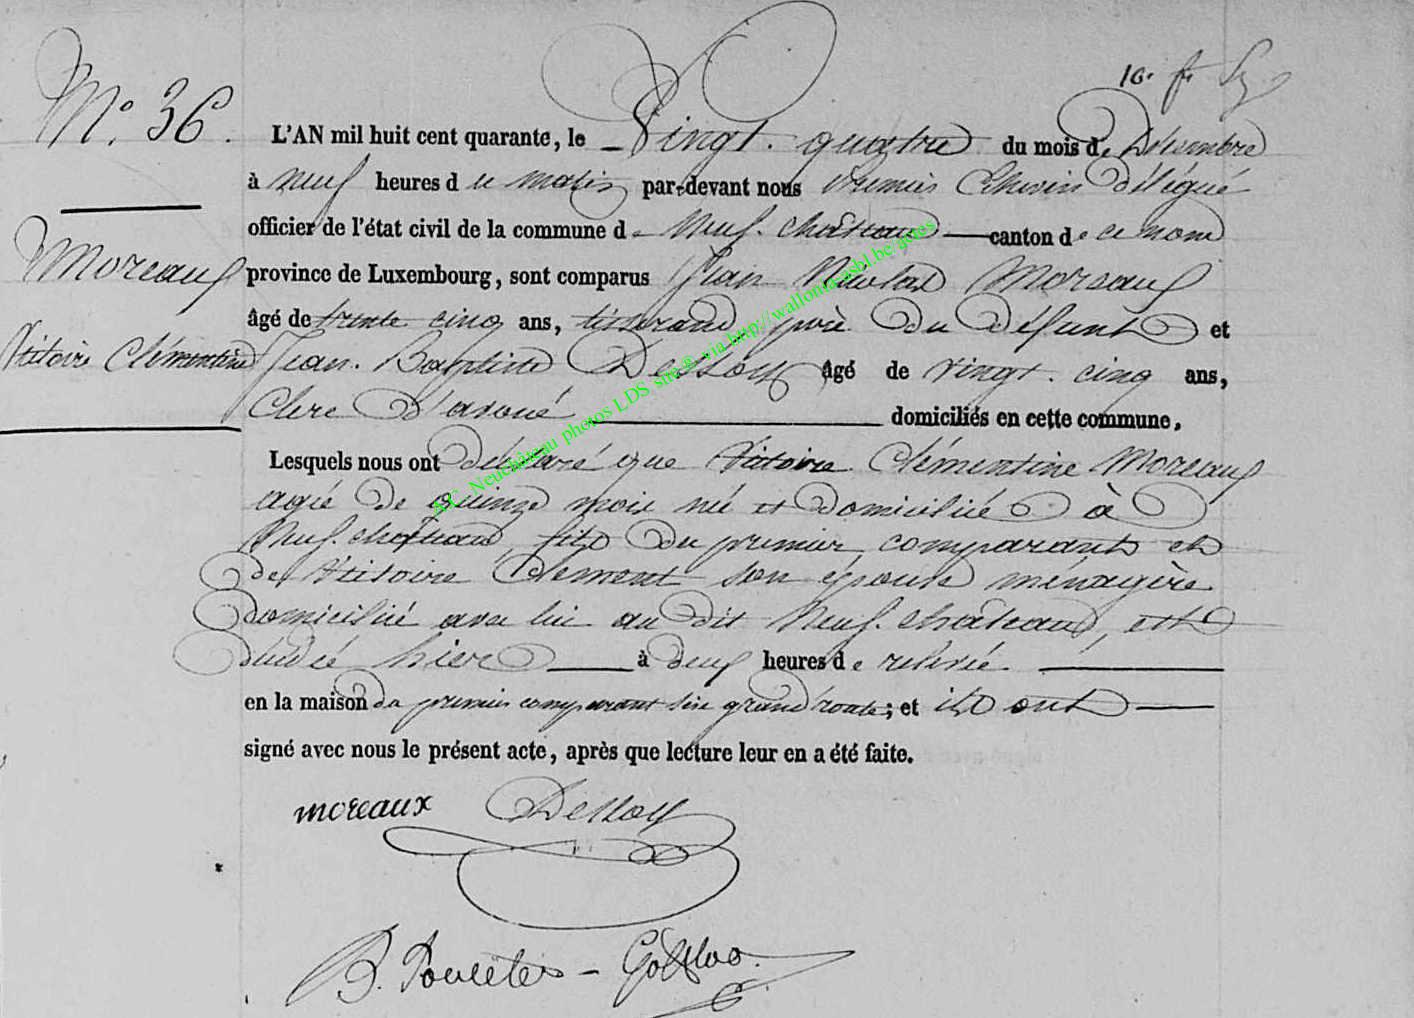 10. f.
N.° 36.
L'AN mil huit cent quarante, le Vingt. quatre du mois de Décembre
à neuf heures d u matin par-devant nous premier Echevin délégué
officier de l'état civil de la commune de Neuf. château canton de ce nom
Moreaux
province de Luxembourg, sont comparus Jean Nicolas Moreaux
âgé de trente cinq ans, tisserand père du défunt et
Victoire Clémentine
Jean. Baptiste Dessoy âgé de vingt. cinq ans,
Clerc d'avoué domiciliés en cette commune.
Lesquels nous ont déclaré que Victoire Clémentine Moreaux
agée de quinze mois née et domiciliée à
Neuf. château, fille du premier comparant et
de Victoire Clement son épouse ménagère
domiciliée avec lui au dit Neuf. château, est
décédée hier à deux heures de relevée
en la maison du premier comparant sise grand'route; et ils ont
signé avec nous le présent acte, après que lecture leur en a été faite.
moreaux Dessoy
A.C. Neufchâteau photos LDS site © via http://wallonia-asbl.be/actes